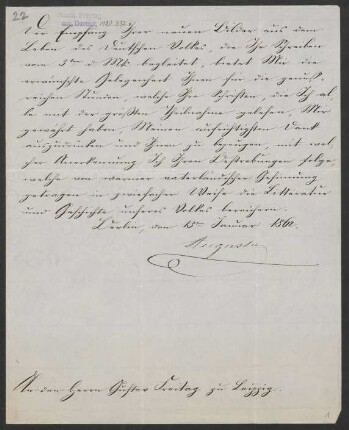 22
Der Empfang Ihrer neuen Bilder aus dem
Leben des Deutschen Volkes, die Ihr Schreiben
vom 5ten d Mts. begleitet, bietet Mir die
erwünschte Gelegenheit Ihnen für die genuß-
reichen Stunden, welche Ihre Schriften, die Ich al-
le mit der größten Theilnahme gelesen, Mir
gewährt haben, Meinen aufrichtigsten Dank
auszudrücken und Ihnen zu bezeugen, mit wel-
cher Anerkennung Ich Ihren Bestrebungen folge,
welche von warmer vaterländischer Gesinnung
getragen in zwiefacher Weise die Litteratur
und Geschichte unseres Volkes bereichern.
Berlin, den 15ten Januar 1862.
Augusta
An den Herrn Gustav Freitag zu Leipzig.
1